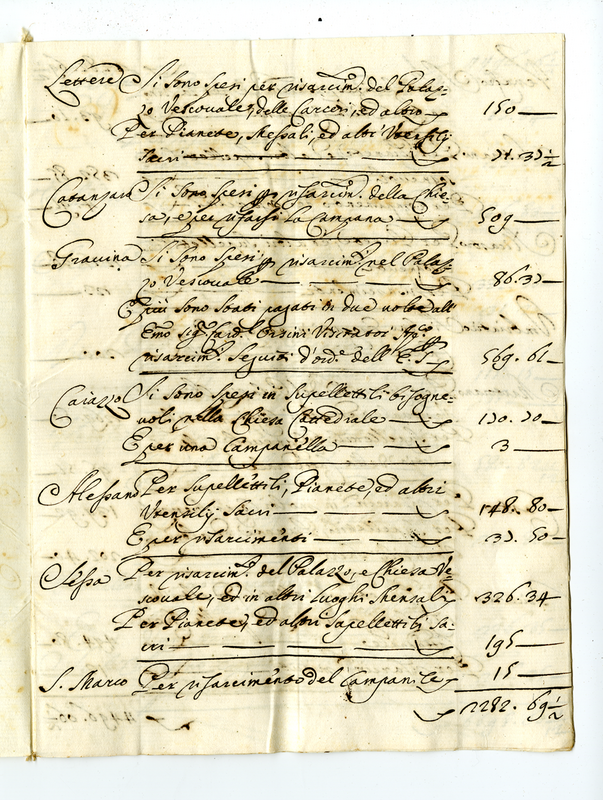 Lettere Si sono spesi per risarcim.ti del Palaz-
zo Vescovale, delle Carceri, ed altro 150
Per Pianete, Messali, ed altri Utensilij
Sacri 71. 37½
Catanzaro Si sono spesi p risarcim.ti della Chie-
sa, e per rifarsi la Campana 509
Gravina Si sono spesi p risarcim.ti nel Palaz-
zo Vescovale 86.37
E più sono stati pagati in due volte all'
Emo Sig.r Card. Orsini Visitator Ap.co p
risarcim.ti seguiti d'ord.e dell' E.S. 569. 61
Caiazzo Si sono spesi in Supellettili bisogne-
voli nella Chiesa Cattedrale 170. 70
E per una Campanella 3
Alessano Per Supellettili, Pianete, ed altri
Utensilij Sacri 148. 80
E per risarcimenti 37. 50
Sessa Per risarcim.ti del Palazzo, e Chiesa Ve-
scovale, ed in altri luoghi Mensali 326.34
Per Pianete, ed altri Supellettili Sa-
cri 195
S. Marco Per risarcimento del Campanile 15
2282. 69½